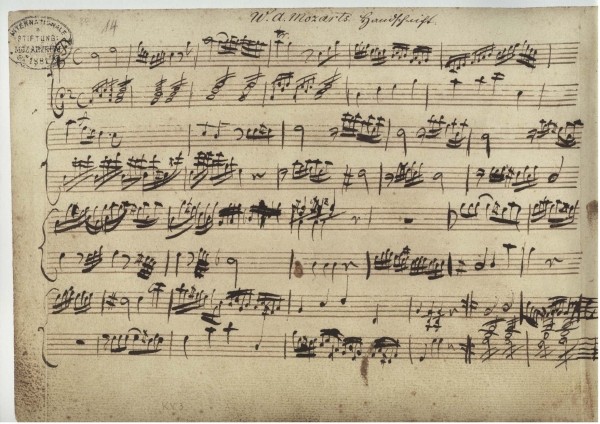 14
W. A. Mozarts Handschrift.
INTERNATIONALE
STIFTUNG:
MOZARTEUM
1881